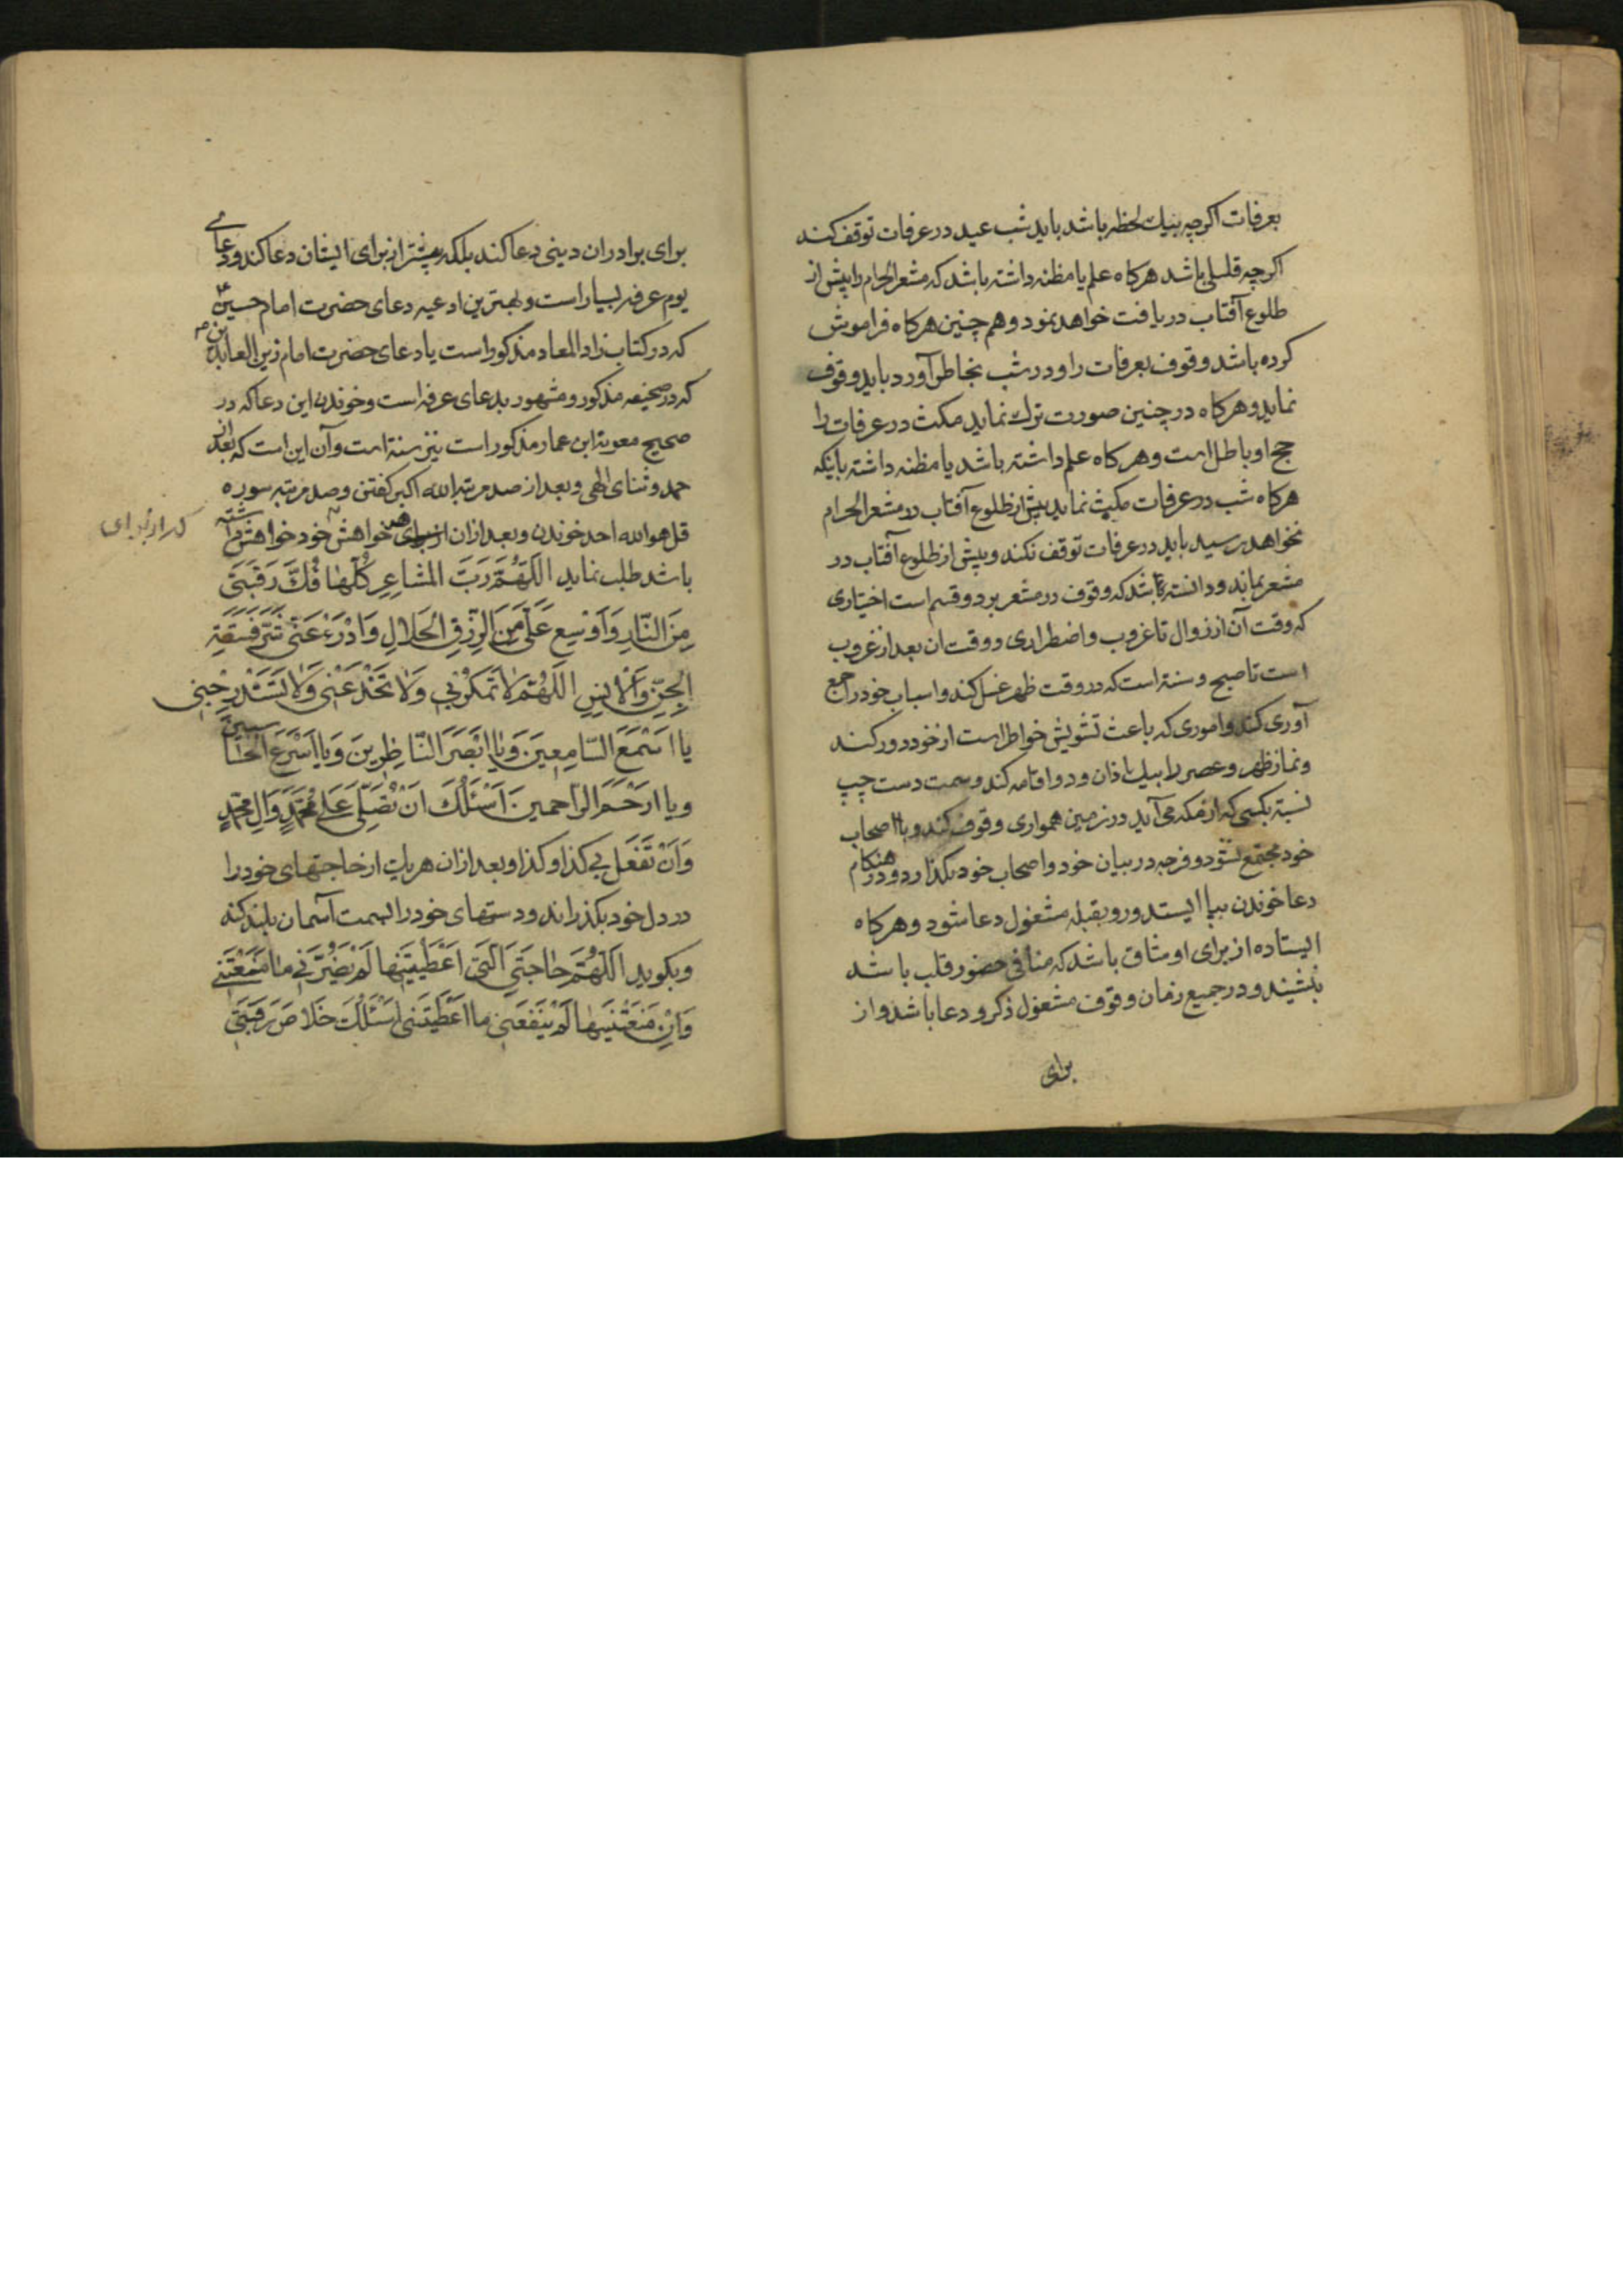 بعرفات اکرچه بیك لحظه باشد باید شب عید در عرفات توقف کند
اکرچه قلیلی باشد هرکاه علم یا مظنه داشته باشد که مشعرالحرام را پیش از
طلوع آفتاب دریافت خواهد نمود و هم چنین هرکاه فراموش
کرده باشد وقوف بعرفات را و در شب بخاطر آورد باید وقوف
نماید و هرکاه در چنین صورت ترك نماید مکث در عرفات را
حج او باطل است و هرکاه علم داشته باشد یا مظنه داشته باینکه
هرکاه شب در عرفات مکث نماید پیش از طلوع آفتاب در مشعر الحرام
نخواهد رسید باید در عرفات توقف نکند و پیش از طلوع آفتاب در
مشعر بماند و دانسته باشد که وقوف در مشعر بر دو قسم است اختیاری
که وقت آن از زوال تا غروب و اضطراری و وقت ان بعد از غروب
است تا صبح و سنة است که در وقت ظهر غسل کند و اسباب خود را جمع
آوری کند و اموری که باعث تشویش خواطر است از خود دور کند
و نماز ظهر و عصر را بیك اذان و دو اقامه کند و سمت دست چپ
نسبة بکسی که از مکه می آید در زمین همواری وقوف کند و با اصحاب
خود مجتمع شود و فرجه در بیان خود و اصحاب خود نکذارد و در هنکام
دعا خوندن بپا ایستد و رو بقبله مشغول دعا شود و هرکاه
ایستاده از برای او شاق باشد که منافی حضور قلب باشد
بنشیند و در جمیع زمان وقوف مشغول ذکر و دعا باشد و از
برای
برای برادران دینی دعا کند بلکه بیشتر از برای ایشان دعا کند و دعای
یوم عرفه بسیار است و بهترین ادعیه دعای حضرت امام حسین ع
که در کتاب زاد المعاد مذکور است یا دعای حضرت امام زین العابدین ع م
که در صحیفه مذکور و مشهور بدعای عرفه است و خوندن این دعا که در
صحیح معویة ابن عمار مذکور است نیز سنة است و آن این است که بعد از
حمد و ثنای الهی و بعد از صد مرتبه الله اکبر کفتن و صد مرتبه سوره
قل هو الله احد خوندن و بعد از ان از برای خواهش خود خواهش داشته
که از برای
باشد طلب نماید اَللّهُمَّ رَبَّ المَشاعِرِ كُلِّها فُكَّ رَقَبَتي
مِنَ النّارِ وَاَوْسِع عَلَيَّ مِنَ الرِّزْقِ الحَلالِ وَادْرَءْ عَنّي شَرَّ فَسَقَةِ
الجِنِّ وَالْاِنسِ اَللّهُمَّ لا تَمكُرْ بي وَلا تَخْدَعْني وَلا تَسْتَدْرِجْني
يا اَسْمَعَ السّامِعينَ وَيا اَبْصَرَ النّاظِرينَ وَيا اَسْرَعَ الحاسبين
ويا ارْحَمَ الرّاحمين اَسْئَلُكَ انْ تُصَلِّيَ عَلى مُحَمَّدٍ وَالِ مُحَمَّدٍ
وَاَنْ تَفْعَلَ بي كذا وكذا و بعد از ان هریك از حاجتهای خود را
در دل خود بکذراند و دستهای خود را بسمت آسمان بلند کند
و بکوید اَللّهُمَّ حاجَتي اَلَّتي اَعْطَيْتَنيها لَمْ يَضُرَّني ما مَنَعْتَني
وَاِنْ مَنَعْتَنيها لَمْ يَنْفَعْني ما اَعْطَيْتَني اَسْئَلُكَ خَلاصَ رَقَبَتي